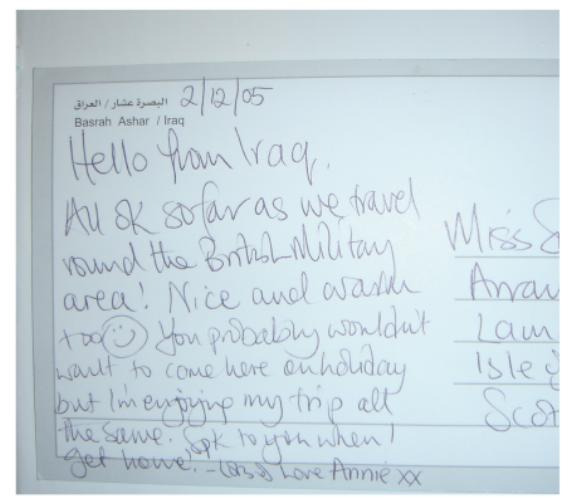 البصرة عشار / العراق 2/12/05
Basrah Ashar / Iraq
Hello from Iraq.
All OK so far as we travel
round the British Military
area! Nice and warm
too You probably wouldn't
want to come here on holiday
but I'm enjoying my trip all
the same. Spk to you when I
get home! - Love Annie xx
Miss S
Arran
Lam
Isle
Scot